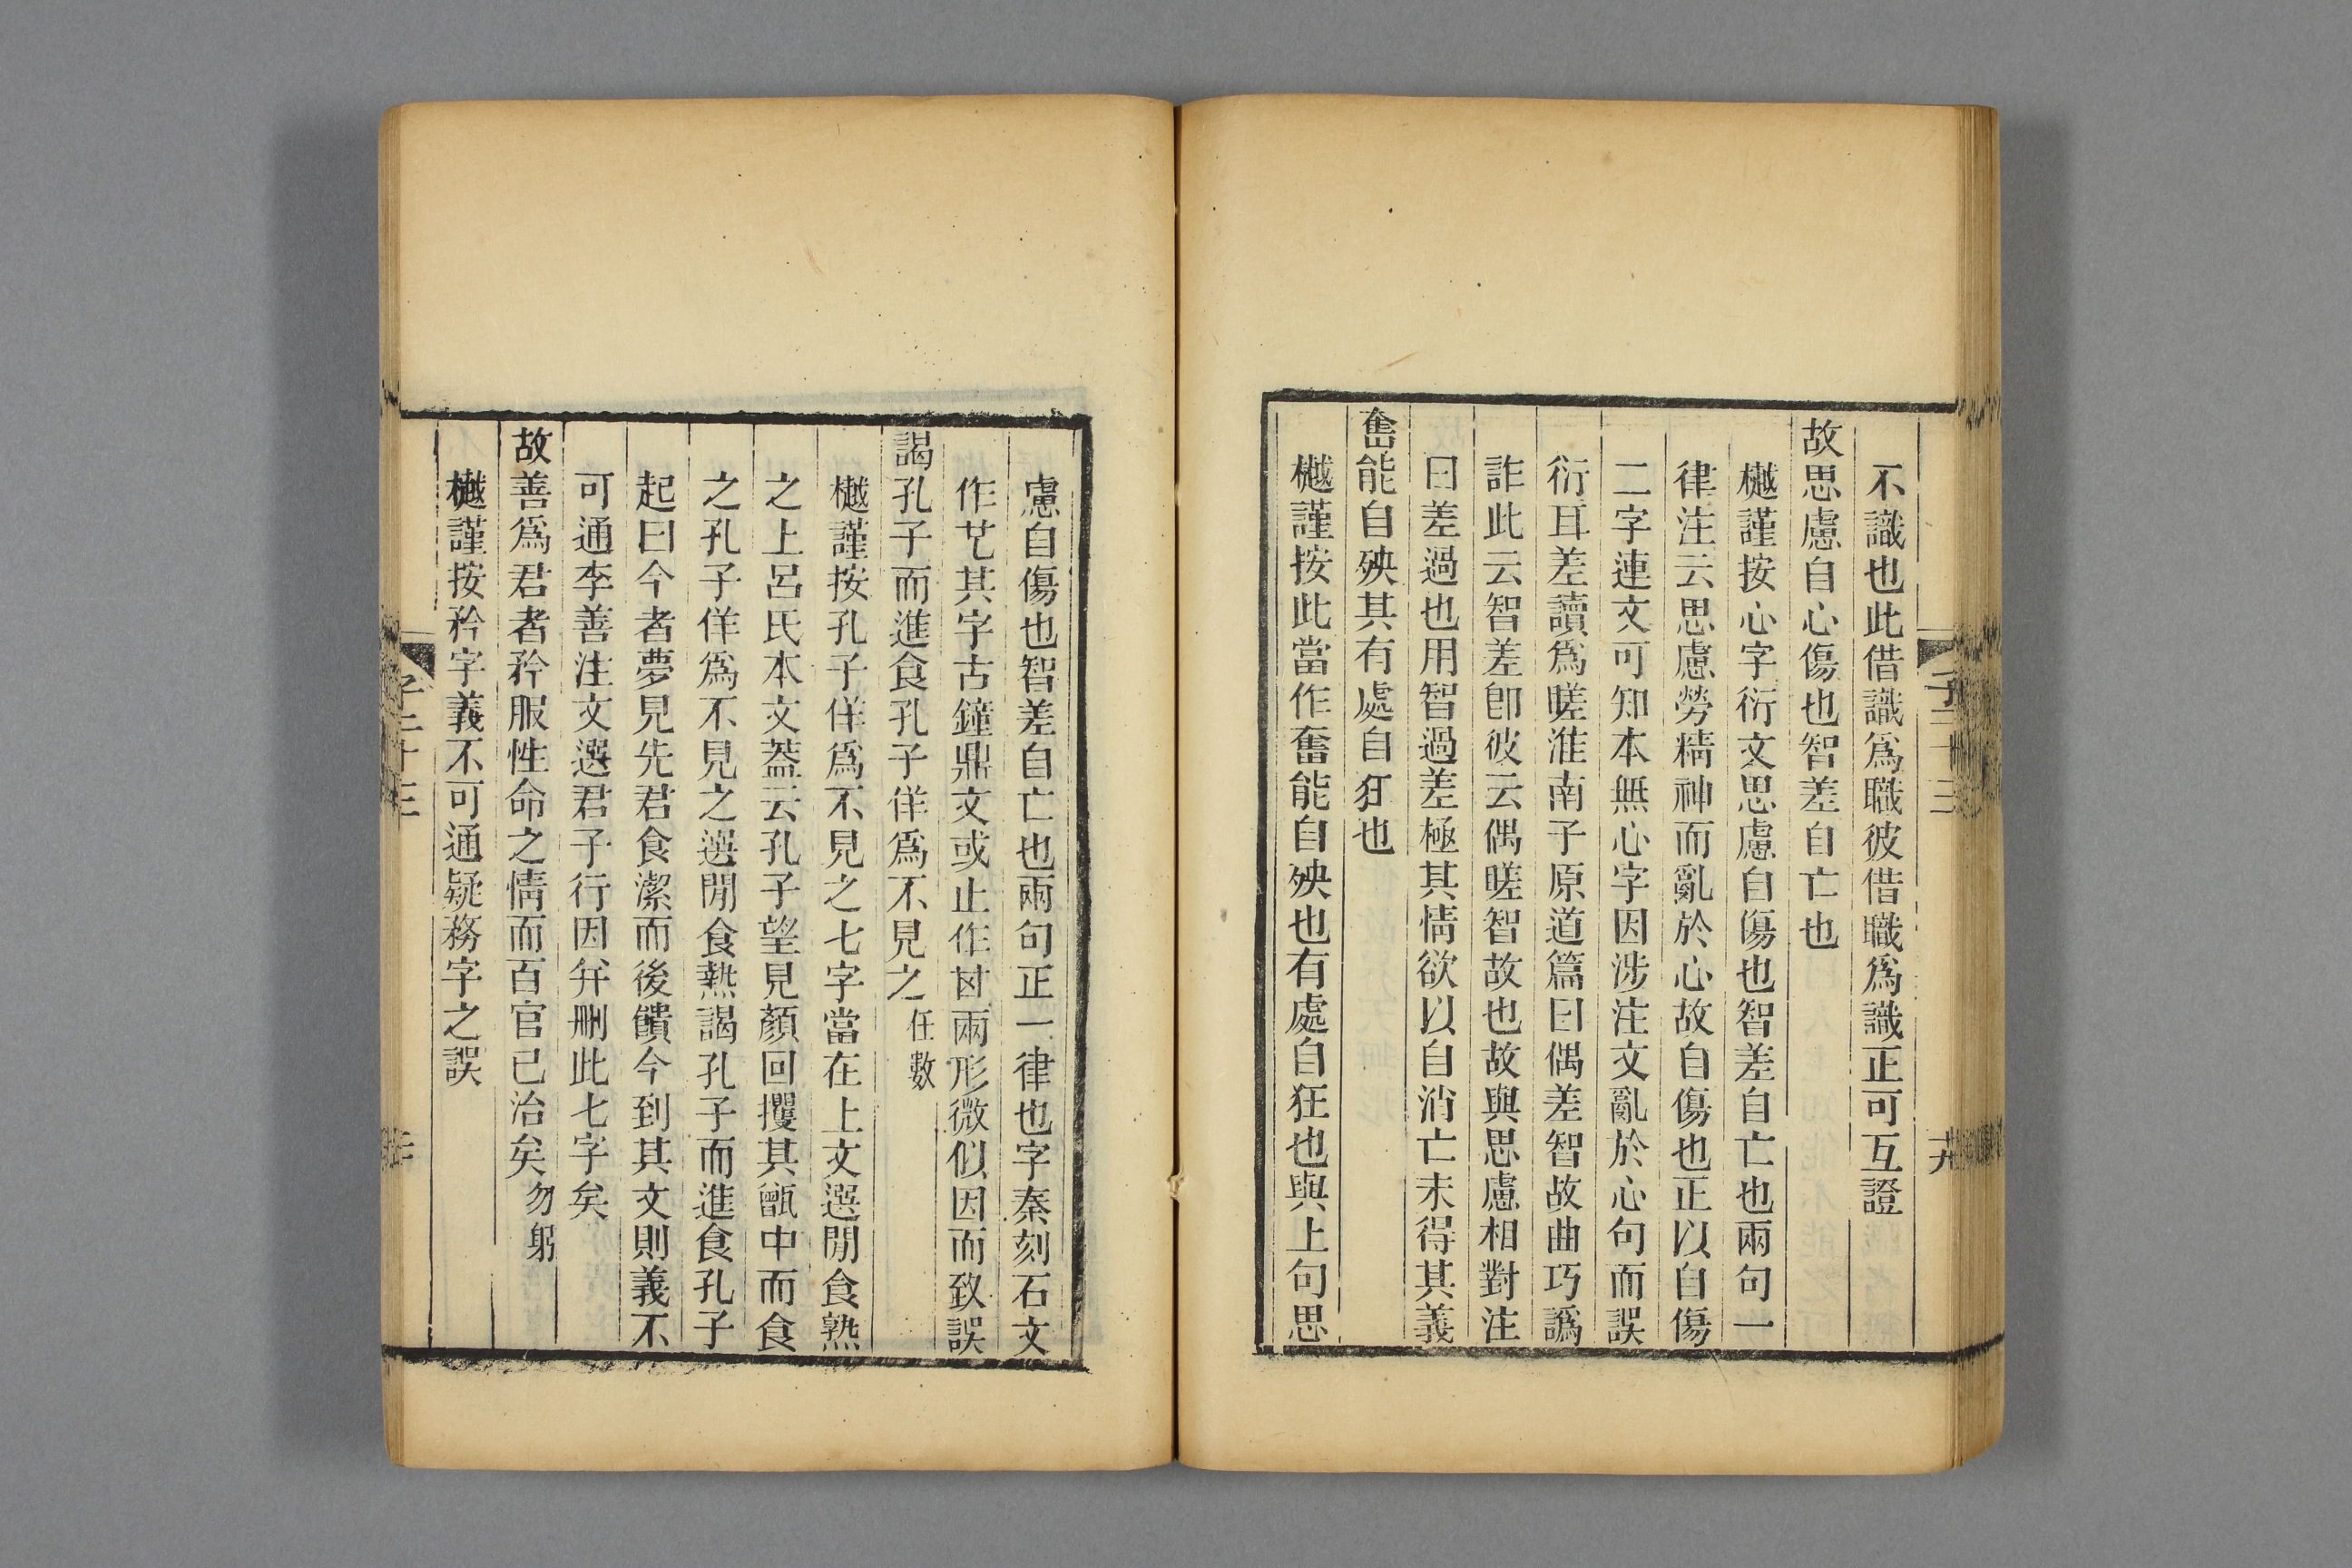 不識也此借識爲職彼借職爲識正可互證
故思慮自心傷也智差自亡也
樾謹按心字衍文思慮自傷也智差自亡也兩句一
律注云思慮勞精神而亂於心故自傷也正以自傷
二字連文可知本無心字因涉注文亂於心句而誤
衍耳差讀爲䁟淮南子原道篇曰偶差智故曲巧譌
詐此云智差卽彼云偶䁟智故也故與思慮相對注
曰差過也用智過差極其情欲以自消亡未得其義
奮能自殃其有處自狂也
樾謹按此當作奮能自殃也有處自狂也與上句思
子二十三
十九
慮自傷也智差自亡也兩句正一律也字秦刻石文
作芅其字古鐘鼎文或止作甘兩形微似因而致誤
謁孔子而進食孔子佯爲不見之 任數
樾謹按孔子佯爲不見之七字當在上文選閒食熟
之上呂氏本文葢云孔子望見顏回攫其甑中而食
之孔子佯爲不見之選閒食熟謁孔子而進食孔子
起曰今者夢見先君食潔而後饋今到其文則義不
可通李善注文選君子行因幷刪此七字矣
故善爲君者矜服性命之情而百官已治矣 勿躬
樾謹按矜字義不可通疑務字之誤
子二十三